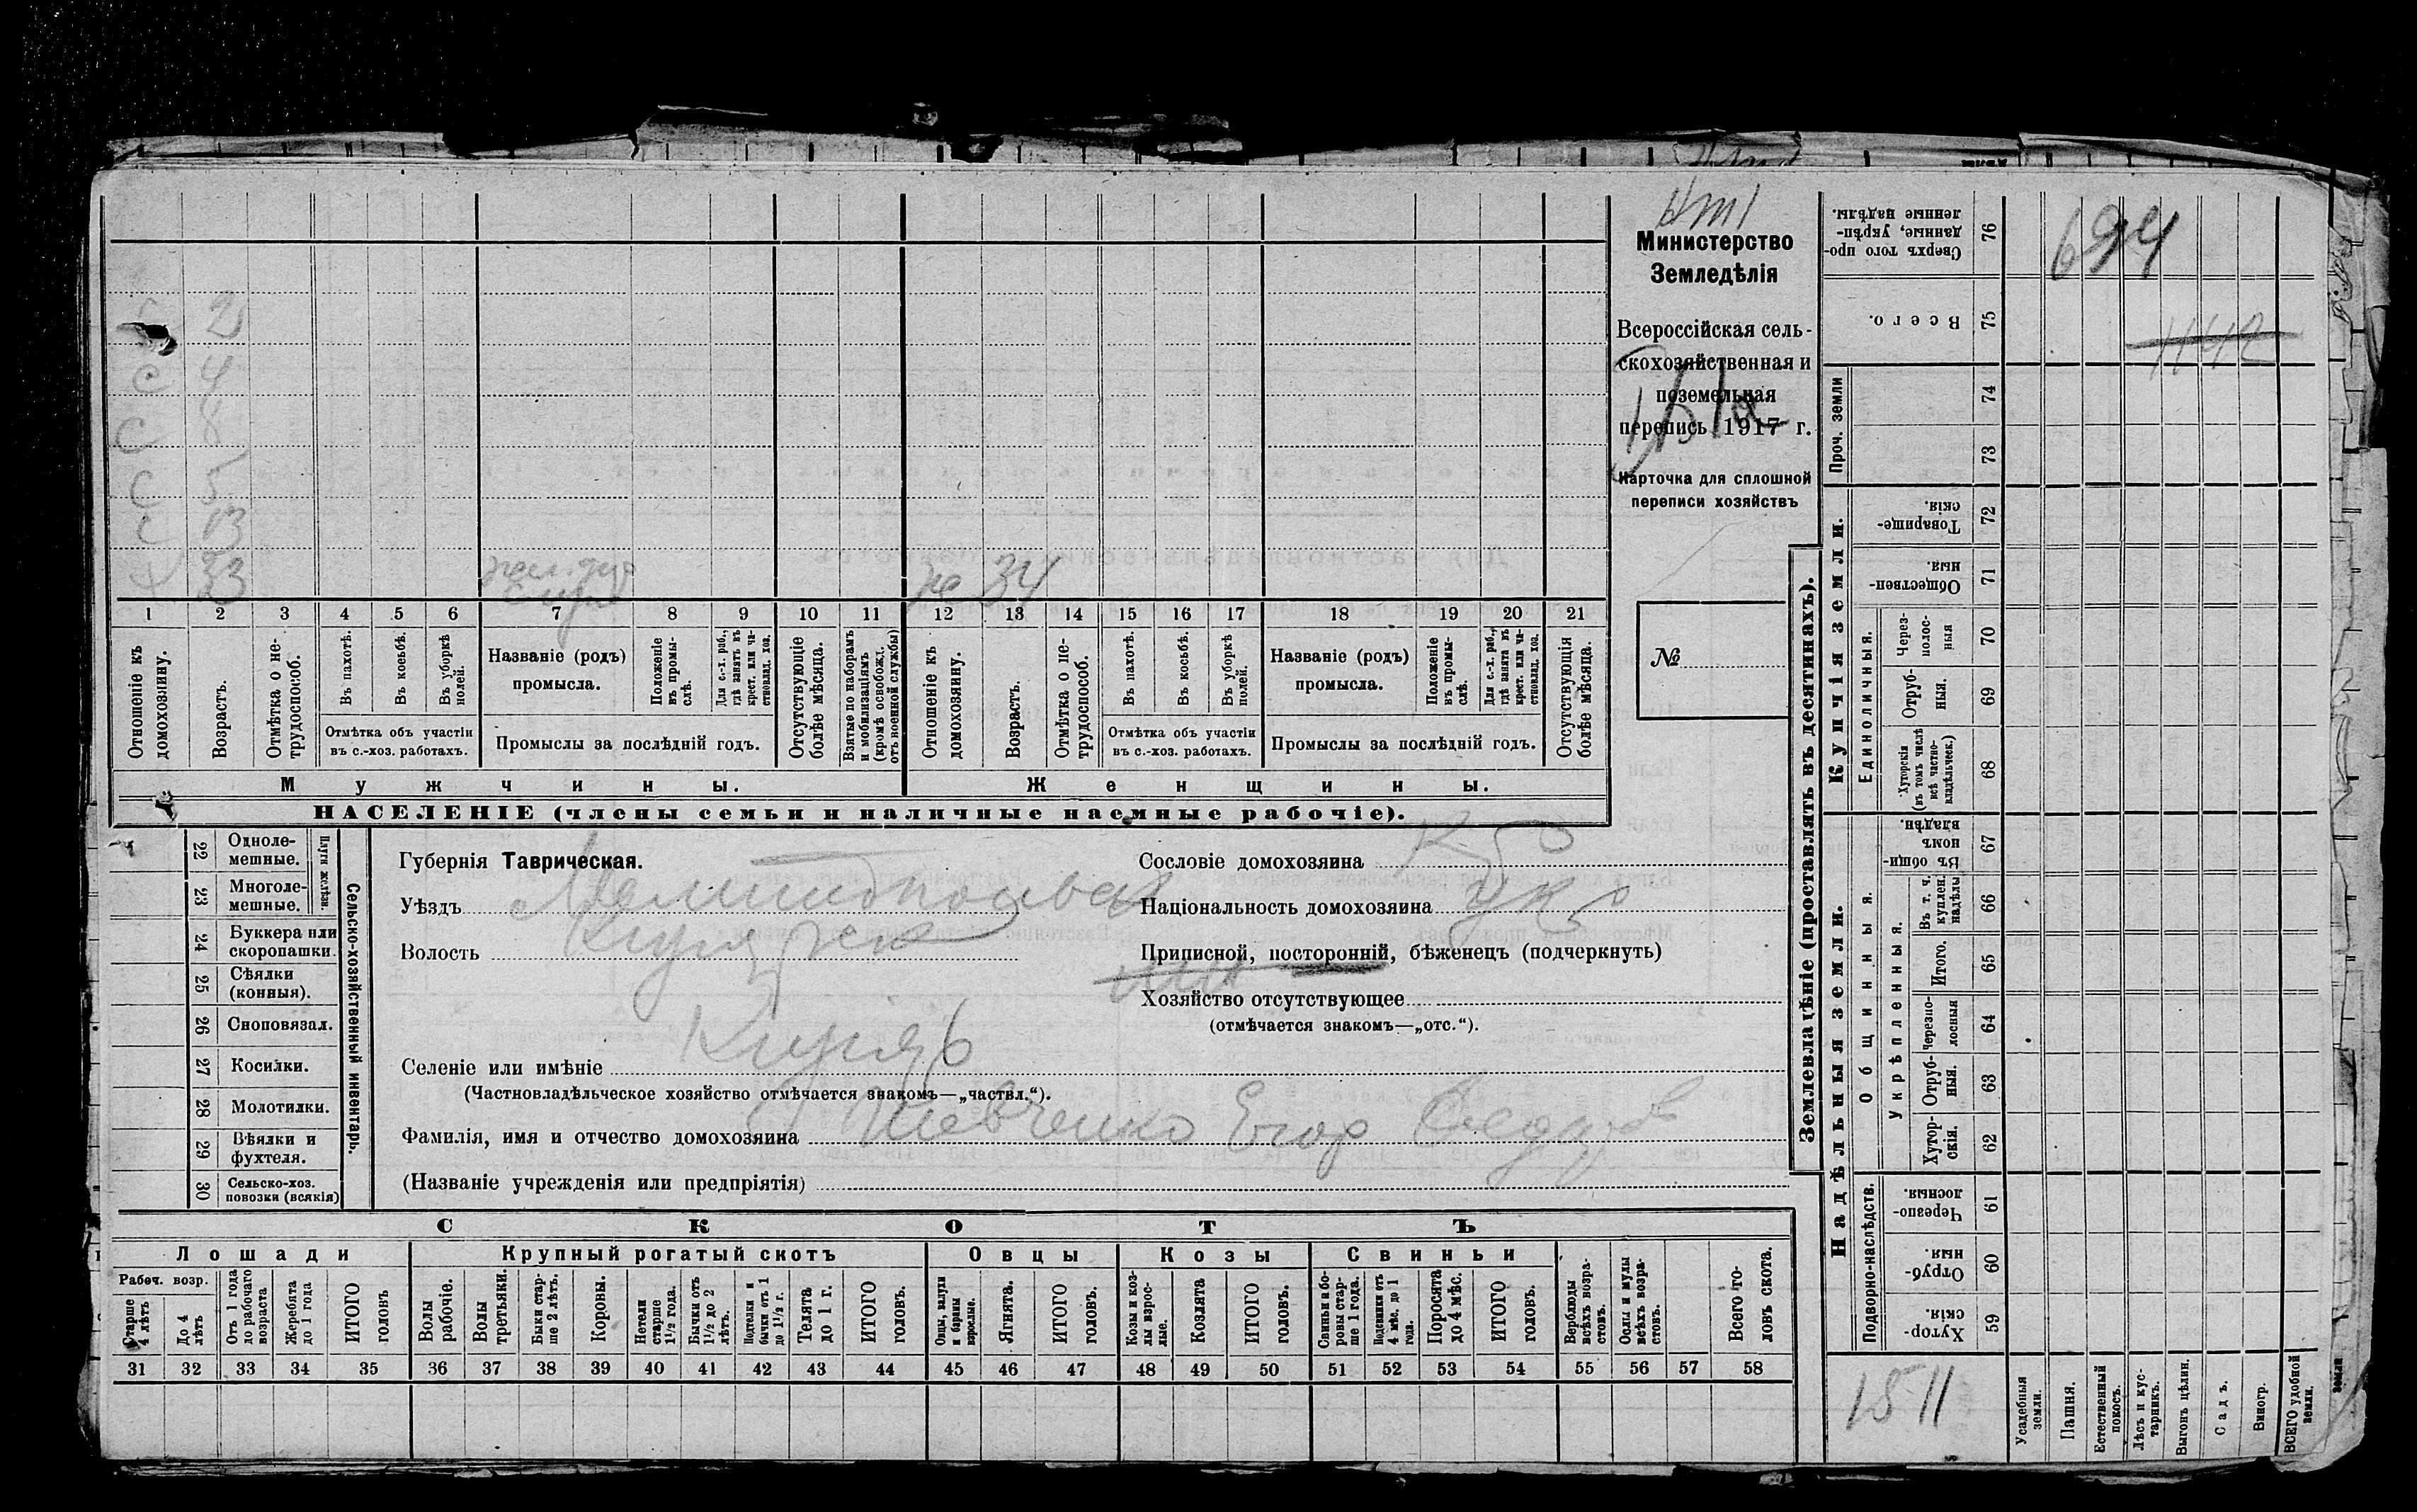 Министерство
Земледѣлія
Всероссійская сель-
скохозяйственная и
поземельная
перепись 1917 г.
Карточка для сплошной
переписи хозяйствъ
№
2
С 4
С 8
С 5
С 13
33
же 34
1 2 3 4 5 6 7 8 9 10 11 12 13 14 15 16 17 18 19 20 21
Отношеніе къ домохозяину.
Возрастъ.
Отмѣтка о не-трудоспособ.
Въ пахотѣ.
Въ косьбѣ.
Въ уборкѣ полей.
Отмѣтка объ участіи въ с.-хоз. работахъ.
Названіе (родъ) промысла.
Положеніе въ промы-слѣ.
Для с.-х. раб., гдѣ занятъ въ крест. или ча-стновлад. хоз.
Промыслы за послѣдній годъ.
Отсутствующіе болѣе мѣсяца.
Взятые по наборамъ и мобилизаціямъ (кромѣ освобожд. отъ военной службы)
Отношеніе къ домохозяину.
Возрастъ.
Отмѣтка о не-трудоспособ.
Въ пахотѣ.
Въ косьбѣ.
Въ уборкѣ полей.
Отмѣтка объ участіи въ с.-хоз. работахъ.
Названіе (родъ) промысла.
Положеніе въ промы-слѣ.
Для с.-х. раб., гдѣ занята въ крест. или ча-стновлад. хоз.
Промыслы за послѣдній годъ.
Отсутствующія болѣе мѣсяца.
Мужчины.
Женщины.
НАСЕЛЕНІЕ (члены семьи и наличные наемные рабочіе).
22 Одноле-мешные.
23 Многоле-мешные.
Плуги желѣзн.
24 Буккера или скоропашки.
25 Сѣялки (конныя).
26 Сноповязал.
27 Косилки.
28 Молотилки.
29 Вѣялки и фухтеля.
30 Сельско-хоз. повозки (всякія)
Сельско-хозяйственный инвентарь.
Губернія Таврическая.
Уѣздъ Мелитопольск
Волость
Селеніе или имѣніе
(Частновладѣльческое хозяйство отмѣчается знакомъ—„частвл.“).
Фамилія, имя и отчество домохозяина Шевченко Егор Федор
(Названіе учрежденія или предпріятія)
Сословіе домохозяина
Національность домохозяина укр
Приписной, посторонній, бѣженецъ (подчеркнуть)
Хозяйство отсутствующее
(отмѣчается знакомъ—„отс.“).
СКОТЪ
Лошади
Крупный рогатый скотъ
Овцы
Козы
Свиньи
Рабоч. возр.
Старше 4 лѣтъ
До 4 лѣтъ
Отъ 1 года до рабочаго возраста
Жеребята до 1 года
ИТОГО головъ
Волы рабочіе.
Волы третьяки.
Быки стар-ше 2 лѣтъ.
Коровы.
Нетели старше 1½ года.
Бычки отъ 1½ до 2 лѣтъ.
Подтелки и бычки отъ 1 до 1½ г.
Телята до 1 г.
ИТОГО головъ.
Овцы, валухи и бараны взрослые.
Ягнята.
ИТОГО головъ.
Козы и коз-лы взрос-лые.
Козлята
ИТОГО головъ.
Свиньи и бо-ровы стар-ше 1 года.
Подсвинки отъ 4 мѣс. до 1 года.
Поросята до 4 мѣс.
ИТОГО головъ.
Верблюды всѣхъ возра-стовъ.
Ослы и мулы всѣхъ возра-стовъ.
Всего го-ловъ скота.
31 32 33 34 35 36 37 38 39 40 41 42 43 44 45 46 47 48 49 50 51 52 53 54 55 56 57 58
Землевладѣніе (проставлять въ десятинахъ).
Сверхъ того про-данные, укрѣп-ленные надѣлы. 76
694
Всего. 75
Проч. земли
74
73
Купчія земли.
Товарище-скія. 72
Обществен-ныя. 71
Единоличныя.
Через-полос-ныя 70
Отруб-ныя. 69
Хуторскія (въ томъ числѣ всѣ частно-владѣльческ.) 68
Надѣльныя земли.
Общинныя.
Въ общи-номъ владѣн. 67
Укрѣпленныя.
Въ т. ч. куплен. надѣлы 66
Итого. 65
Черезпо-лосныя 64
Отруб-ныя. 63
Хутор-скія. 62
Подворно-наслѣдств.
Черезпо-лосныя. 61
Отруб-ныя. 60
Хутор-скія. 59
1511
Усадебныя земли.
Пашня.
Естественный покосъ.
Лѣсъ и кус-тарникъ.
Выгонъ цѣлин.
Садъ.
Виногр.
ВСЕГО удобной земли.